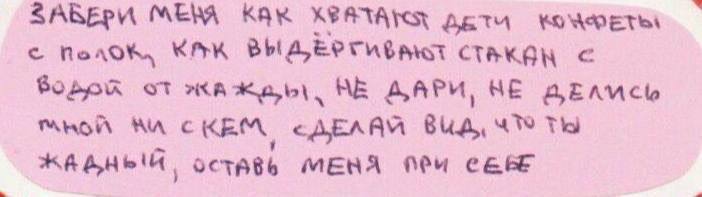 ЗАБЕРИ МЕНЯ КАК ХВАТАЮТ ДЕТИ КОНФЕТЫ
С ПОЛОК, КАК ВЫДЁРГИВАЮТ СТАКАН С
ВОДОЙ ОТ ЖАЖДЫ, НЕ ДАРИ, НЕ ДЕЛИСЬ
МНОЙ НИ С КЕМ, СДЕЛАЙ ВИД, ЧТО ТЫ
ЖАДНЫЙ, ОСТАВЬ МЕНЯ ПРИ СЕБЕ